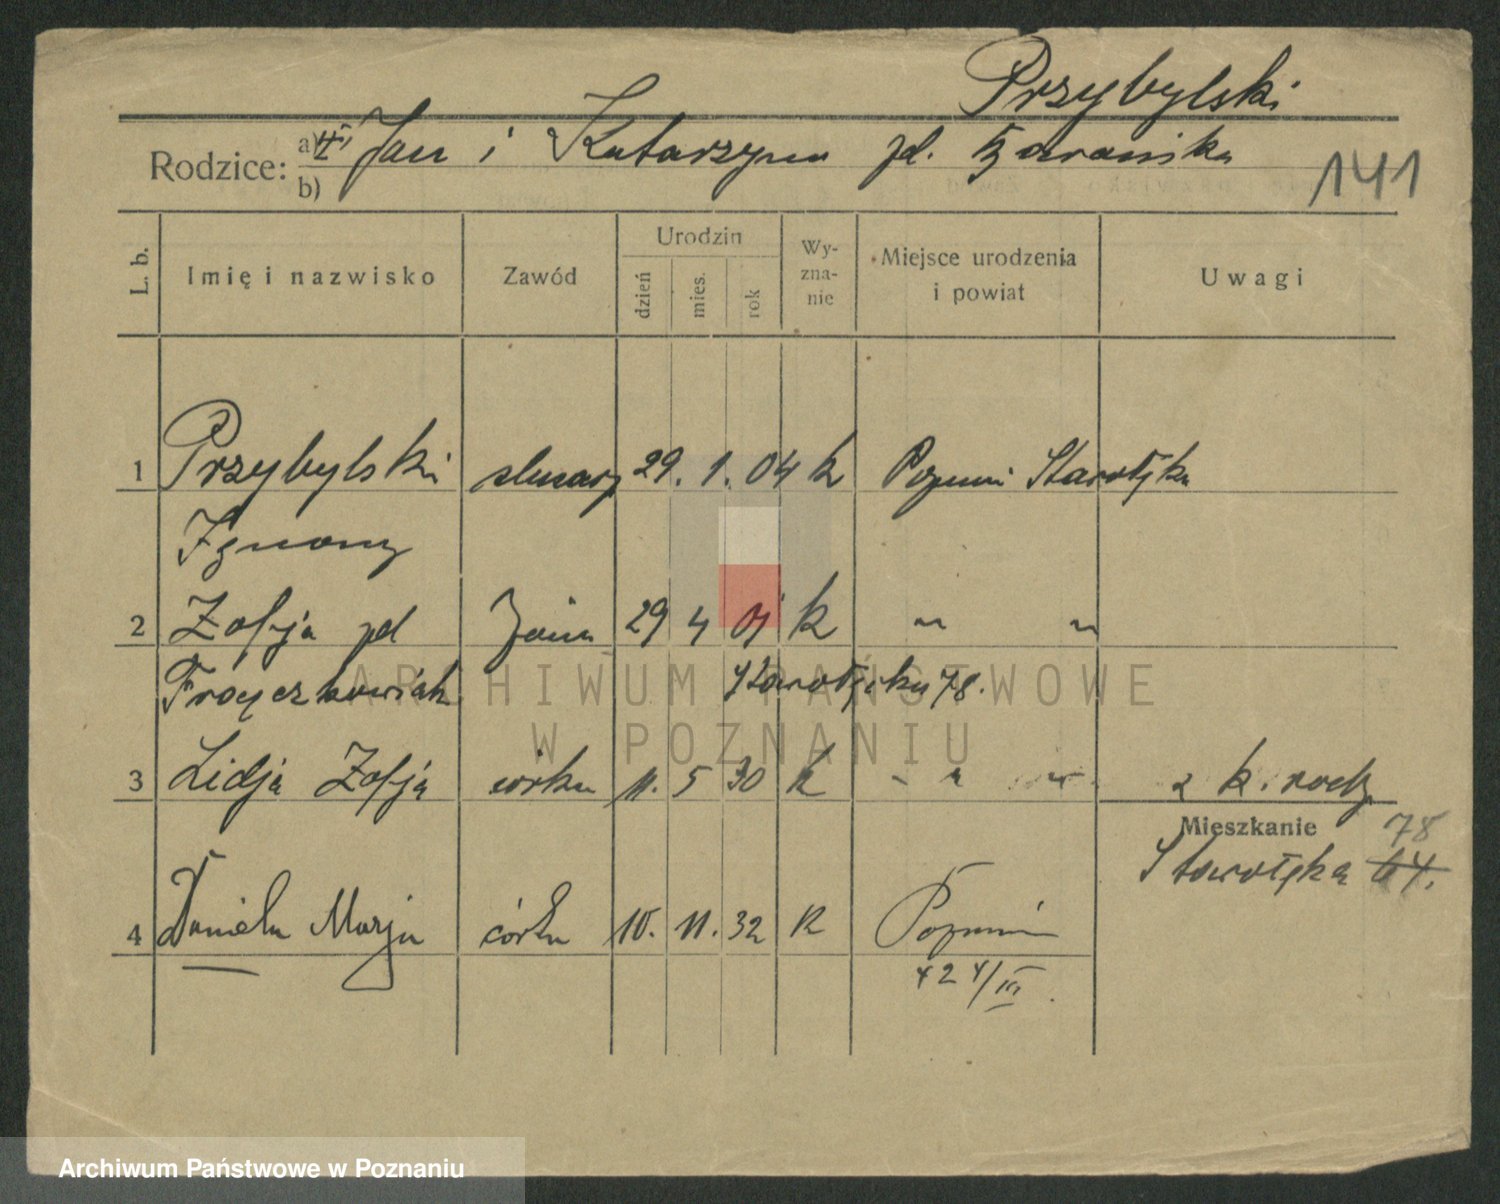 Przybylski
Rodzice:
a) III Jan i Katarzyna zd. Barańska
b)
141
L. b.
Imię i nazwisko
Zawód
Urodzin
dzień
mies.
rok
Wy-
zna-
nie
Miejsce urodzenia
i powiat
Uwagi
1 Przybylski ślusarz 29. 1. 04 k Poznań Starołęka
Ignacy
2 Zofja zd żona 29 4 k " "
Frąckowiak Starołęka 78.
3 Lidja Zofja córka 11. 5 30 k " " " z k. rodz
Mieszkanie 78
Starołęka 64.
4 Daniela Marja córka 10. 11. 32 k Poznań
424/III.
ARCHIWUM PAŃSTWOWE
W POZNANIU
Archiwum Państwowe w Poznaniu